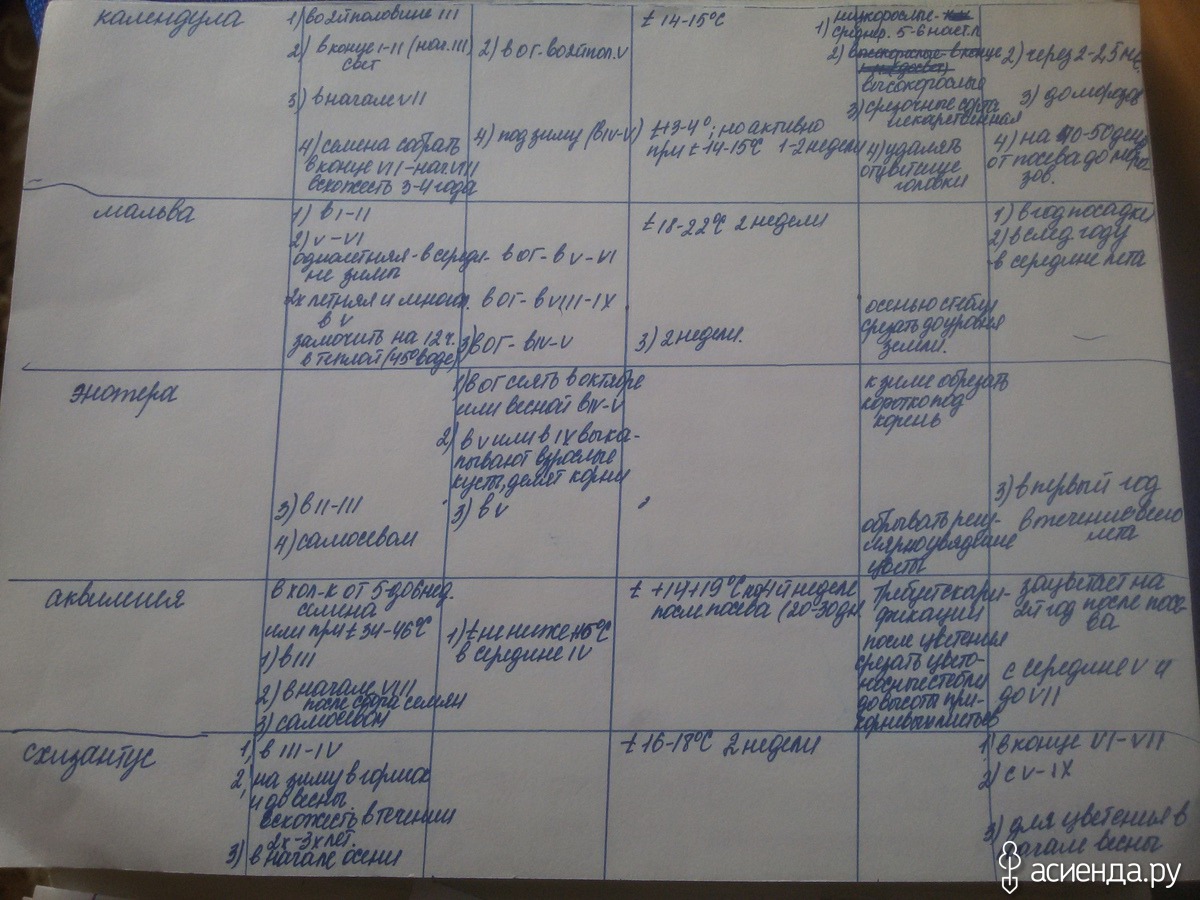 календула
1) во 2й половине III
2) в конце I-II (нач. III)
3) в начале VII
4) семена собрать
в конце VII - нач. VIII
всхожесть 3-4 года
2) в ог - во 2й пол. V
4) под зиму (в IV-V)
t 14-15°C
t+3-4°; но активно
при t 14-15°C 1-2 недели
1) низкорослые-
среднер. 5-6 наст. л
2) высокорослые - в конце
высокорослые
3) срезочные сорта
лекарственная
4) удалять
отцветшие
головки
2) через 2-2,5 ме
3) до морозов
4) на 40-50 день
от посева до моро-
зов.
мальва
1) в I-II
2) V-VI
однолетняя - в середи-
не зимы
2х летняя и многол.
в V
замочить на 12 ч.
в теплой (45° воде)
в ог - в V-VI
в ог - в VIII-IX
3) в ог - в IV-V
t 18-22°C 2 недели
3) 2 недели.
осенью стебли
срезать до уровня
земли.
1) в год посадки
2) в след году
в середине лета
энотера
3) в II-III
4) самосевом
1) в ог сеять в октябре
или весной в IV-V
2) в V или в IX выка-
пывают взрослые
кусты, делят корни
3) в V
к зиме обрезать
коротко под
корень
обрывать
увядшие
цветы
3) в первый год
в течение всего
лета
аквилегия
в хол-к от 5 до 6 нед.
семена
или при t 34-46°C
1) в III
2) в начале VIII
после сбора семян
3) самосевом
1) t не ниже +15°C
в середине IV
t +14+19°C на 4й неделе
после посева (20-30 дн.
требует скари-
фикации
после цветения
срезать цвето-
носные стебли
до высоты при-
корневых листьев
зацветает на
2й год после посе-
ва
с середине V и
до VII
схизантус
1) в III-IV
2) на зиму в горшок
и до весны.
всхожесть в течении
2х-3х лет.
3) в начале осени
t 16-18°C 2 недели
1) в конце VI-VII
2) с V-IX
3) для цветенья в
начале весны
асиенда.ру